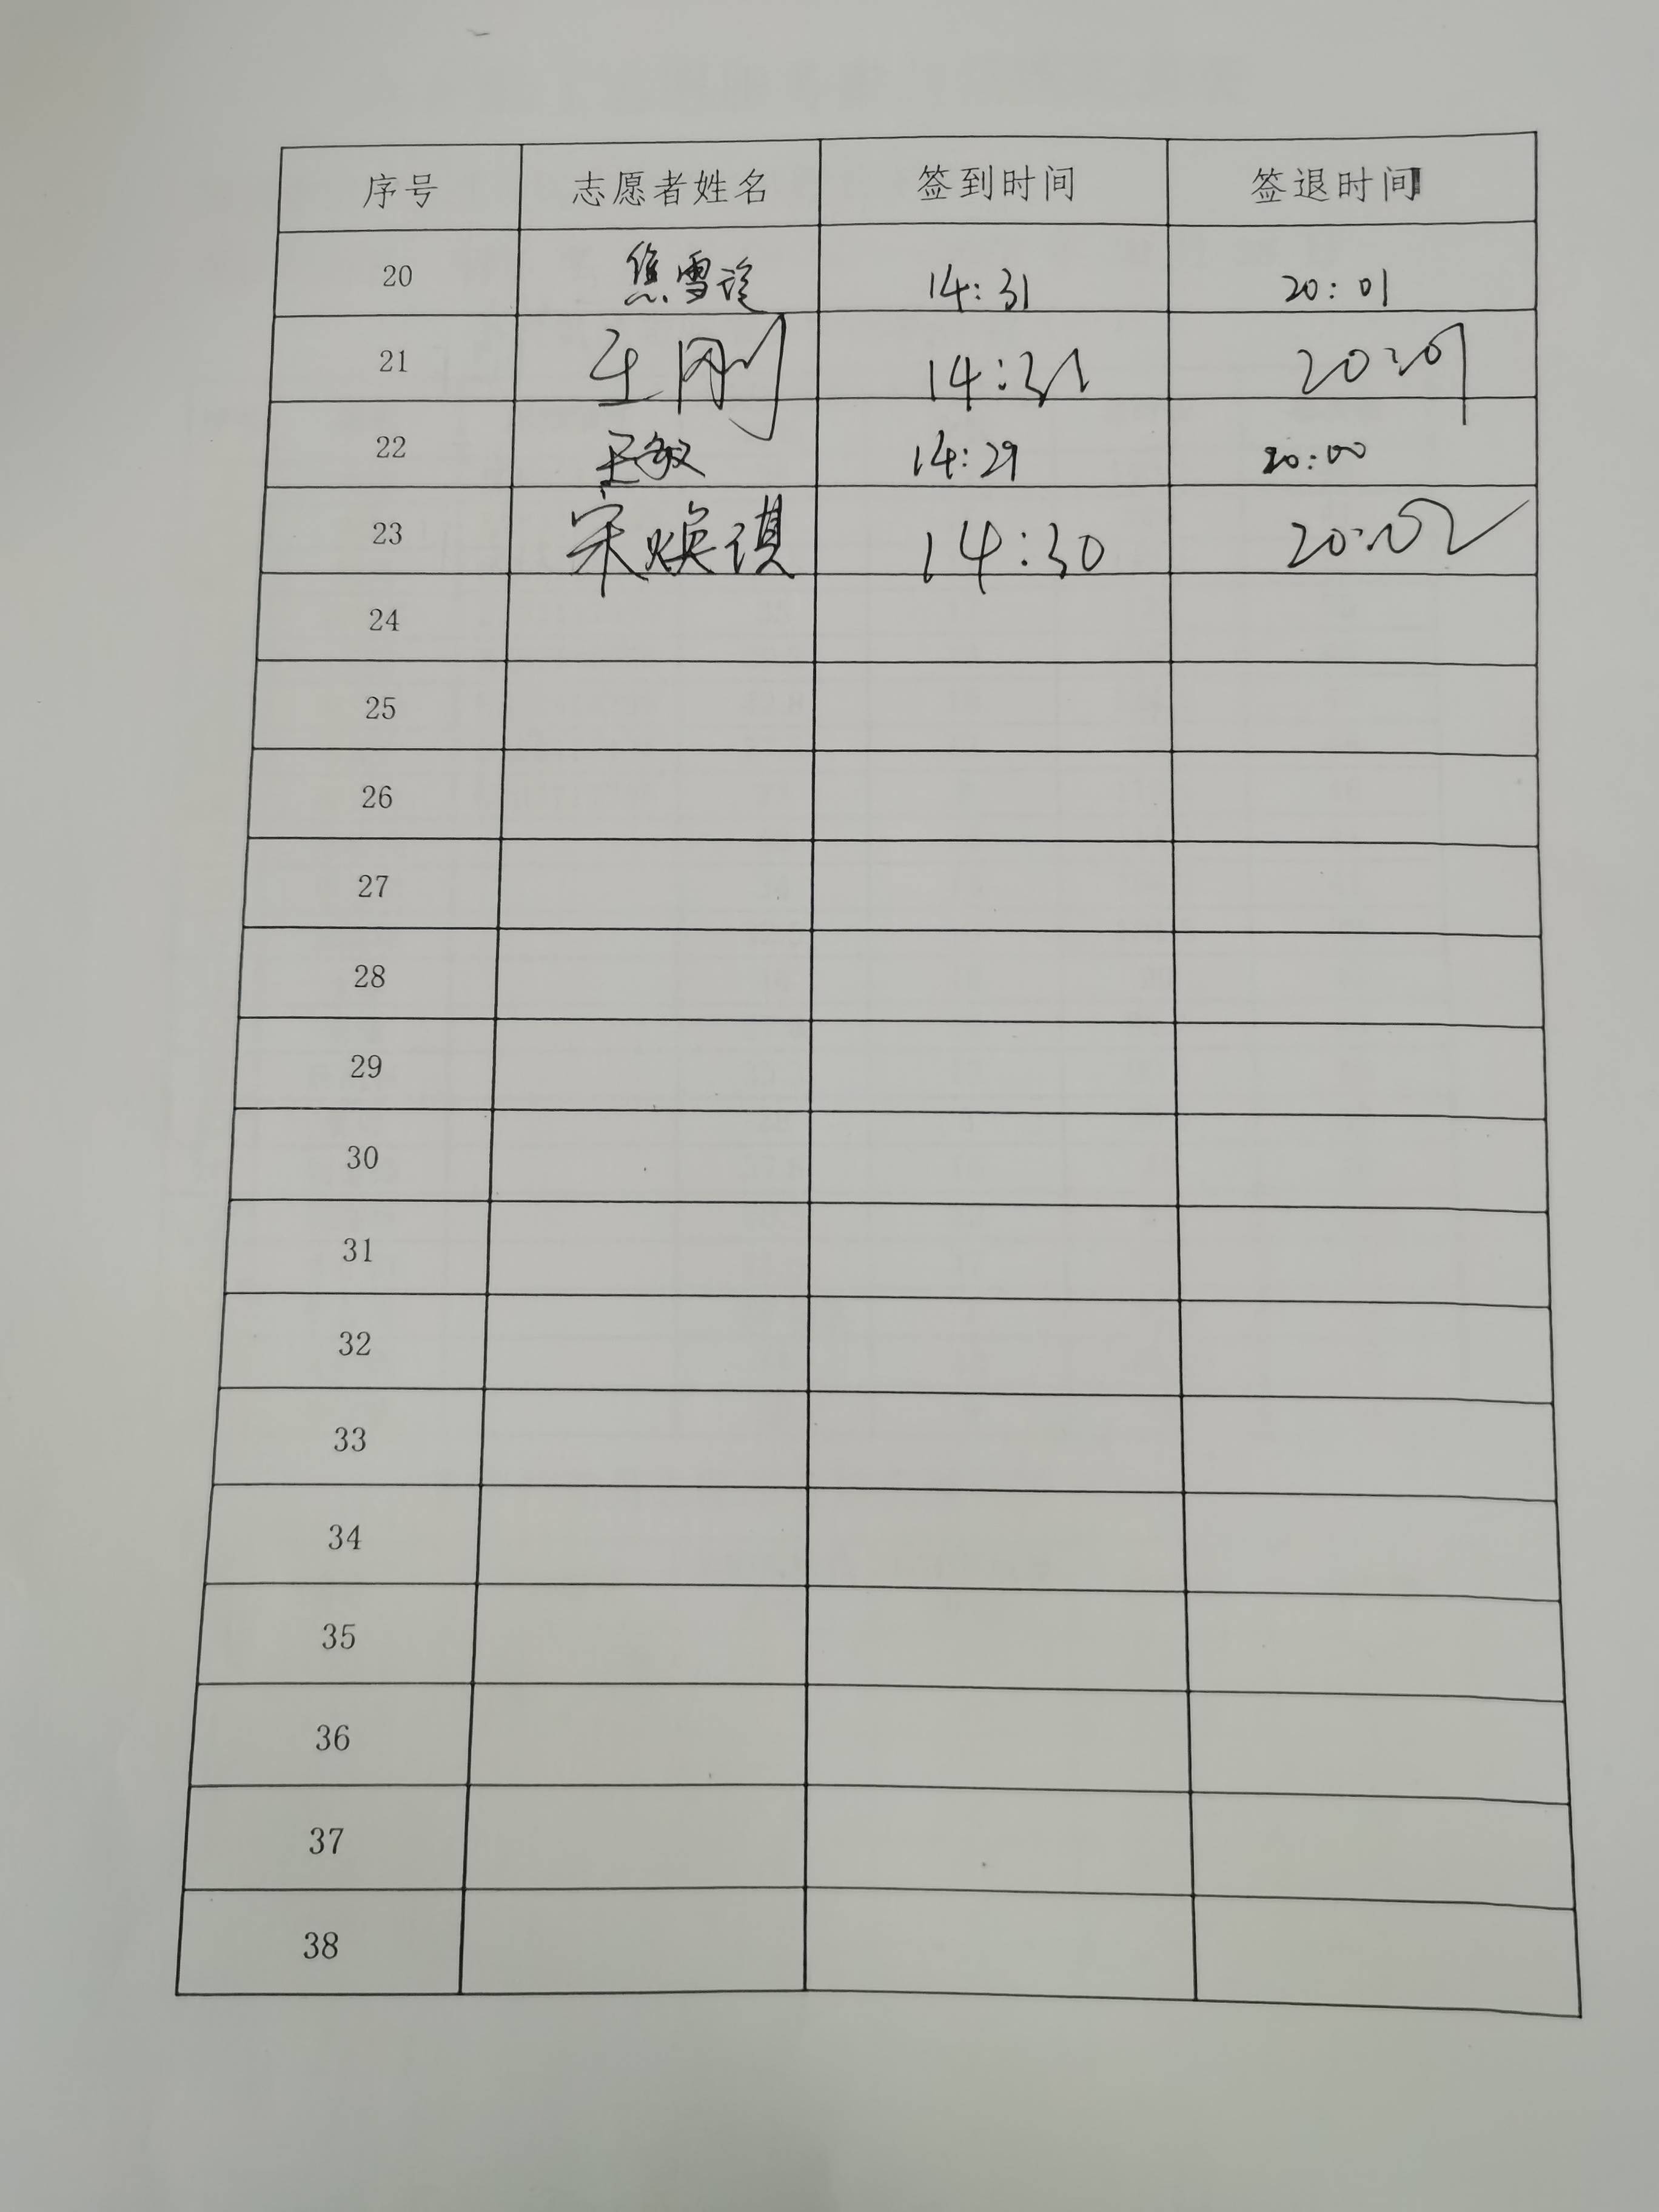 序号 志愿者姓名 签到时间 签退时间
20 焦雪 14:31 20:01
21 王刚 14:31 20:01
22 王敏 14:29 20:00
23 宋焕琪 14:30 20:02
24
25
26
27
28
29
30
31
32
33
34
35
36
37
38